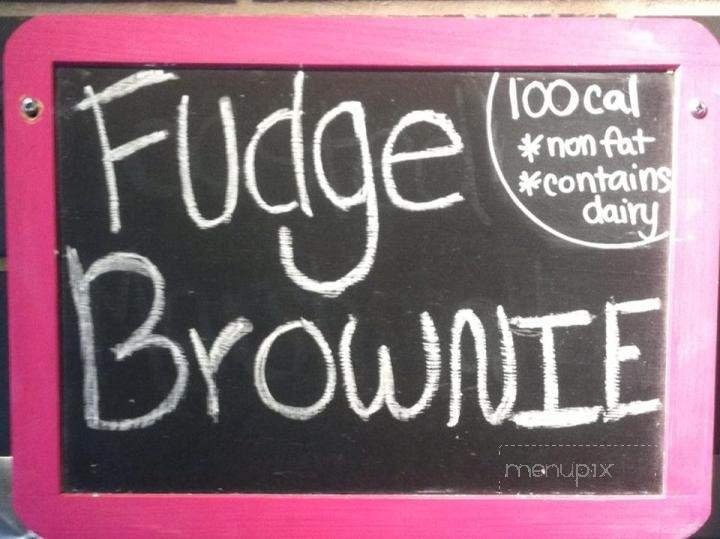 Fudge
BROWNIE
100 cal
*non fat
*contains
dairy
menupix